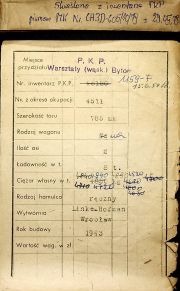 Skreślono z inwentarza PKP
pismem PTK Nr CH3D-605/4/79 z 29.05.79
P. K. P.
Miejsce
przydziału Warsztaty (wąsk.) Bytom
Nr. inwentarz P.K.P. 1159-F
Nr. z okresu okupacji 4511
Szerokość toru 785 mm
Rodzaj wagonu
Ilość osi 2
Ładowność w t. 5 t.
Ciężar własny w t.
Rodzaj hamulca ręczny
Wytwórnia Linke-Hofman
Wrocław
Rok budowy 1943
Wartość wag. w zł.